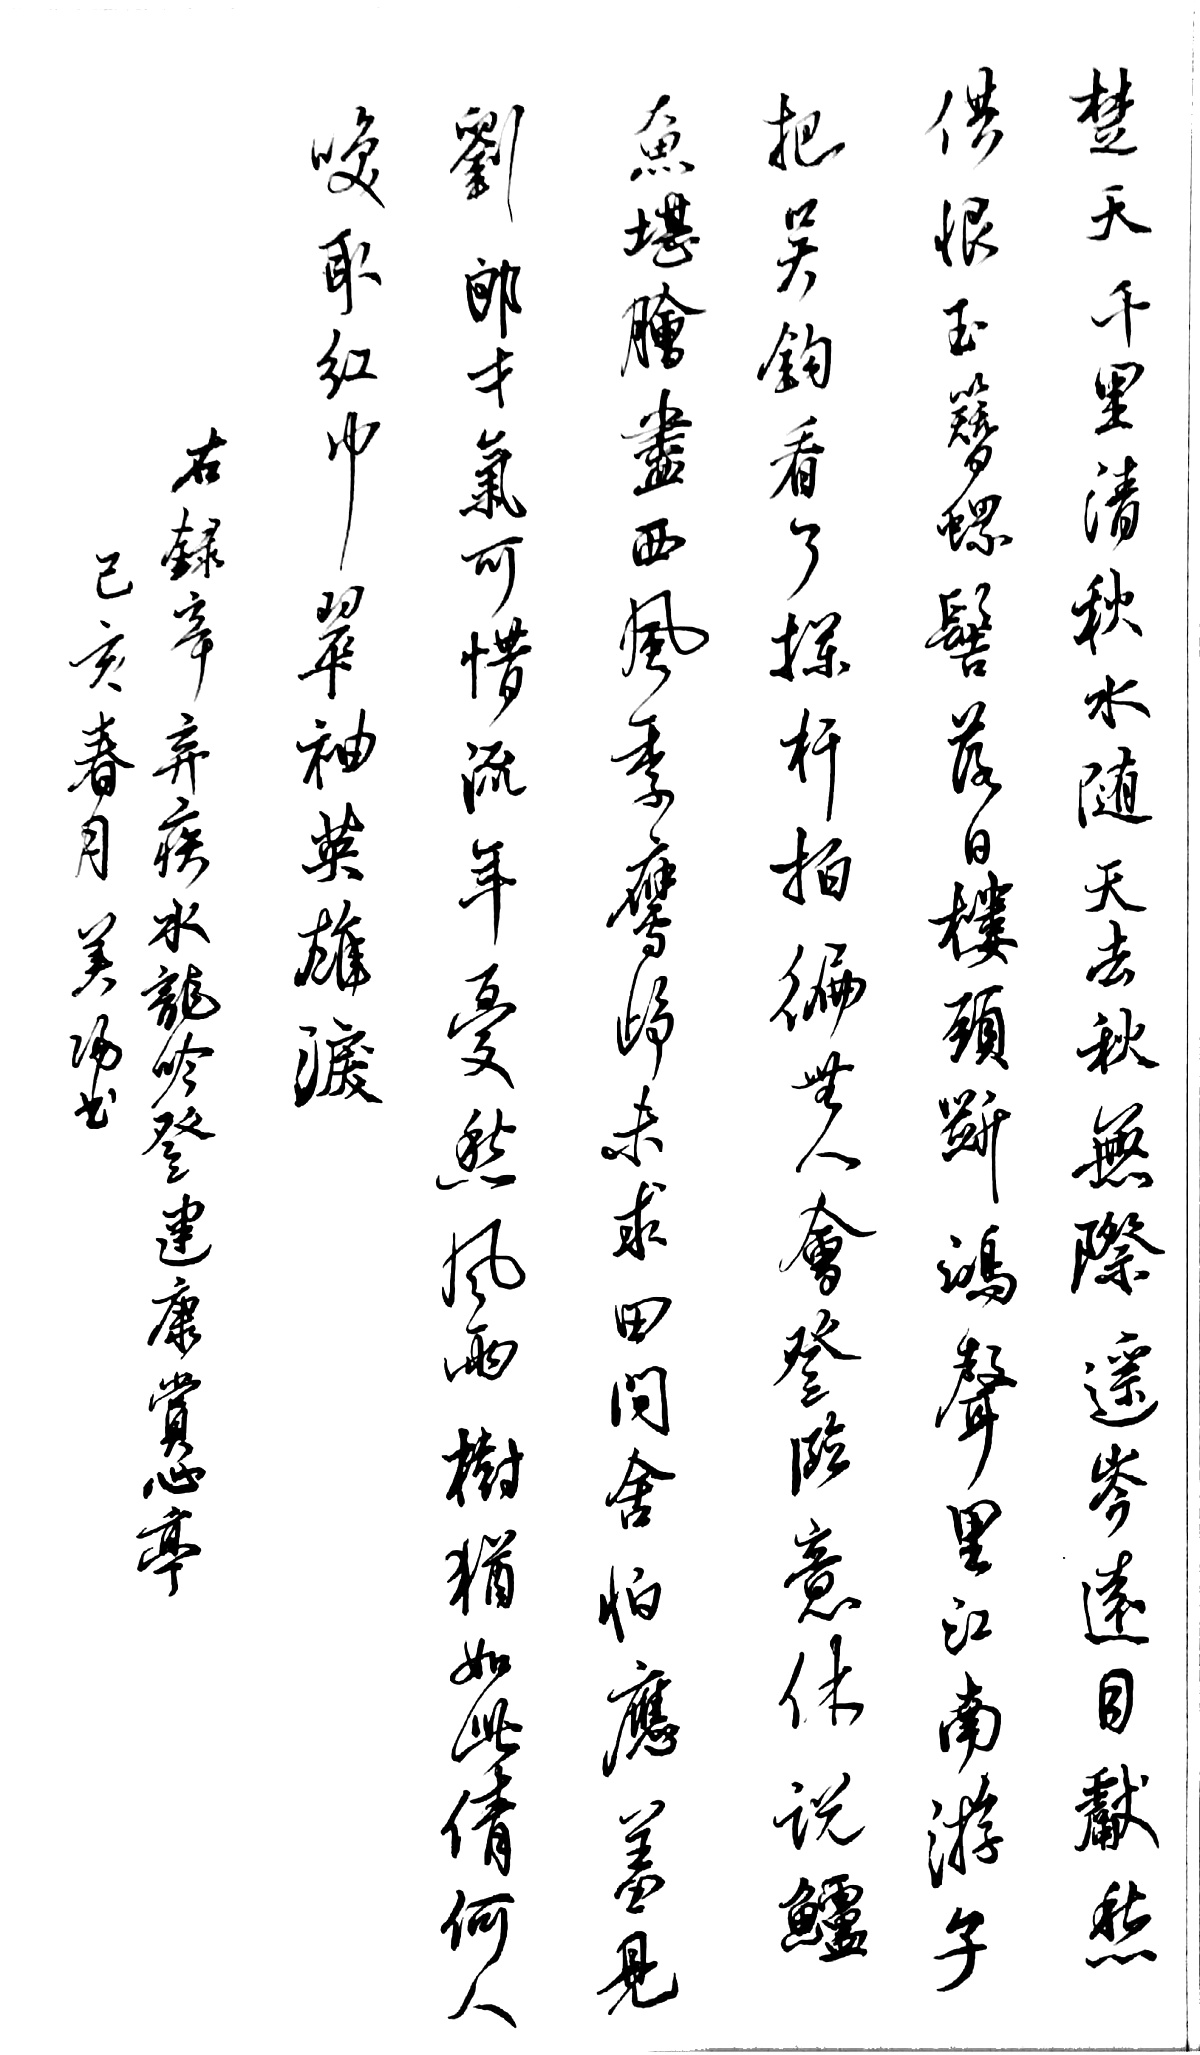 楚天千里清秋水随天去秋無際遥岑遠目獻愁
供恨玉簪螺髻落日樓頭斷鴻聲里江南游子
把吴鈎看了欄杆拍徧無人會登臨意休説鱸
魚堪膾盡西風季鷹歸未求田問舍怕應羞見
劉郎才氣可惜流年憂愁風雨樹猶如此倩何人
喚取紅巾翠袖英雄淚
右録辛弃疾水龍吟登建康賞心亭
己亥春月美陽书